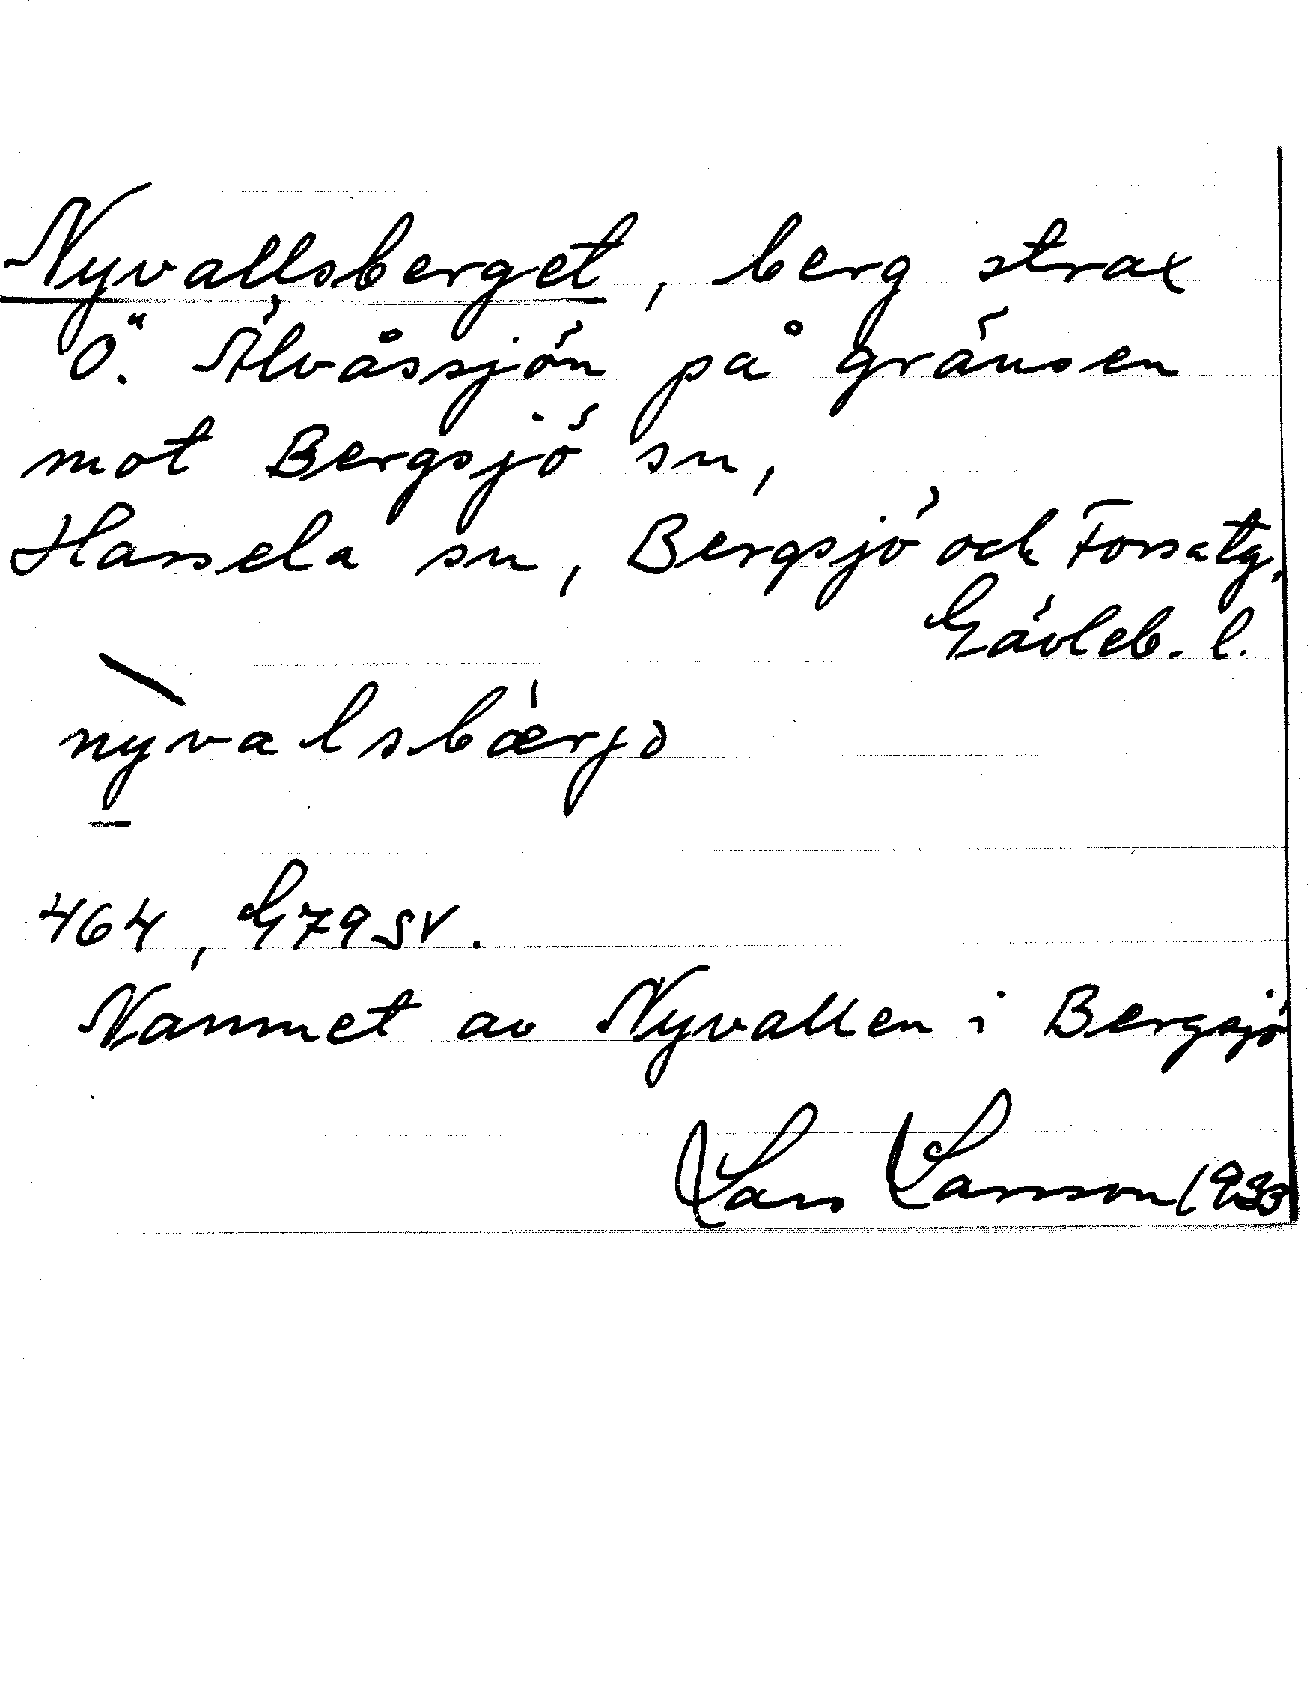 Nyvallsberget, berg strax
Ö. Älvåssjön på gränsen
mot Bergsjö sn,
Hassela sn, Bergsjö och Forsa tg,
Gävleb. l.
nyvalsbærjə
464, G79SV.
Namnet av Nyvallen i Bergsjö
Lars Larsson 1933